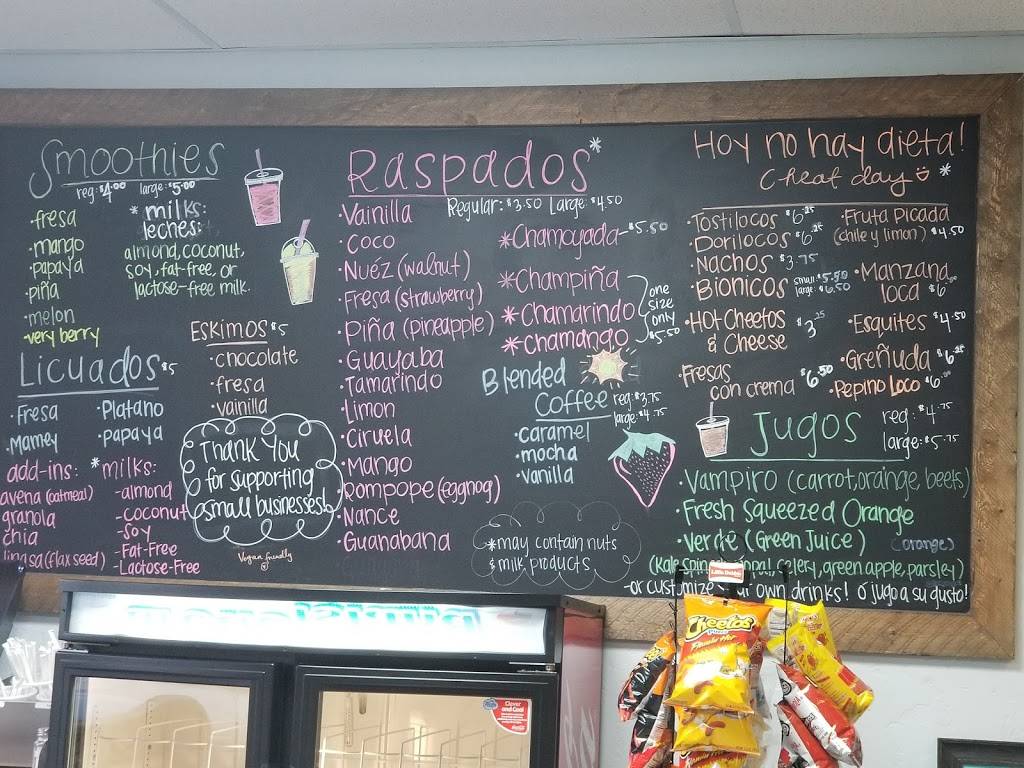 Smoothies
reg: $4.00 large: $5.00
·fresa
·mango
·papaya
·piña
·melon
·very berry
* milks:
leches:
almond, coconut,
soy, fat-free, or
lactose-free milk.
Licuados $5
·Fresa
·Mamey
·Platano
·papaya
add-ins:
avena (oatmeal)
granola
chia
linasa (flax seed)
*milks:
-almond
-coconut
-Soy
-Fat-Free
-Lactose-Free
ESKIMOS $5
·chocolate
·fresa
·vainilla
THANK YOU
for supporting
small businesses!
Vegan friendly
Raspados*
Regular: $3.50 Large: $4.50
·Vainilla
·Coco
·Nuéz (walnut)
·Fresa (strawberry)
·Piña (pineapple)
·Guayaba
·Tamarindo
·Limon
·Ciruela
·Mango
·Rompope (eggnog)
·Nance
·Guanabana
*Chamoyada - $5.50
*Champiña
*Chamarindo
*Chamango
one
size
only
$5.50
Blended
Coffee
reg: $3.75
large: $4.75
·caramel
·mocha
·vanilla
*may contain nuts
& milk products
Hoy no hay dieta!
Cheat day *
·Tostilocos $6.25
·Dorilocos $6.25
·Nachos $3.75
·Bionicos small: $5.50
large: $6.50
·Hot Cheetos
& Cheese $3.25
·Fresas
con crema $6.50
·Fruta Picada
(chile y limon) $4.50
·Manzana
loca $6.00
·Esquites $4.50
·Greñuda $6.25
·Pepino Loco $6.00
Jugos
reg: $4.75
large: $5.75
·Vampiro (carrot, orange, beets)
·Fresh Squeezed Orange
·Verde (Green Juice)
(orange)
(Kale, celery, green apple, parsley)
-or customize own drinks! ó jugo a su gusto!
Clover
and Cool
Cheetos
Flamin' Hot